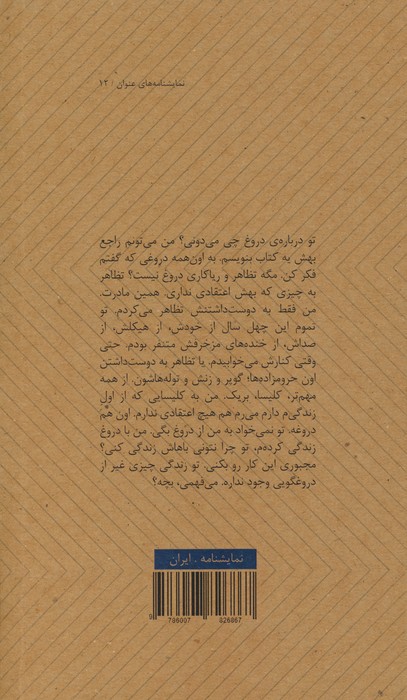 نمایشنامه‌های عنوان / ۱۲
تو درباره‌ی دروغ چی می‌دونی؟ من می‌تونم راجع
بهش یه کتاب بنویسم. به اون‌همه دروغی که گفتم
فکر کن. مگه تظاهر و ریاکاری دروغ نیست؟ تظاهر
به چیزی که بهش اعتقادی نداری. همین مادرت.
من فقط به دوست‌داشتنش تظاهر می‌کردم. تو
تموم این چهل سال از خودش، از هیکلش، از
صداش، از خنده‌های مزخرفش متنفر بودم. حتی
وقتی کنارش می‌خوابیدم. یا تظاهر به دوست‌داشتن
اون حرومزاده‌ها؛ گوپر و زنش و توله‌هاشون. از همه
مهم‌تر، کلیسا، بریک. من به کلیسایی که از اول
زندگی‌م دارم می‌رم هم هیچ اعتقادی ندارم. اون هم
دروغه. تو نمی‌خواد به من از دروغ بگی. من با دروغ
زندگی کرده‌م، تو چرا نتونی باهاش زندگی کنی؟
مجبوری این کار رو بکنی. تو زندگی چیزی غیر از
دروغگویی وجود نداره. می‌فهمی، بچه؟
نمایشنامه . ایران
9 786007 826867